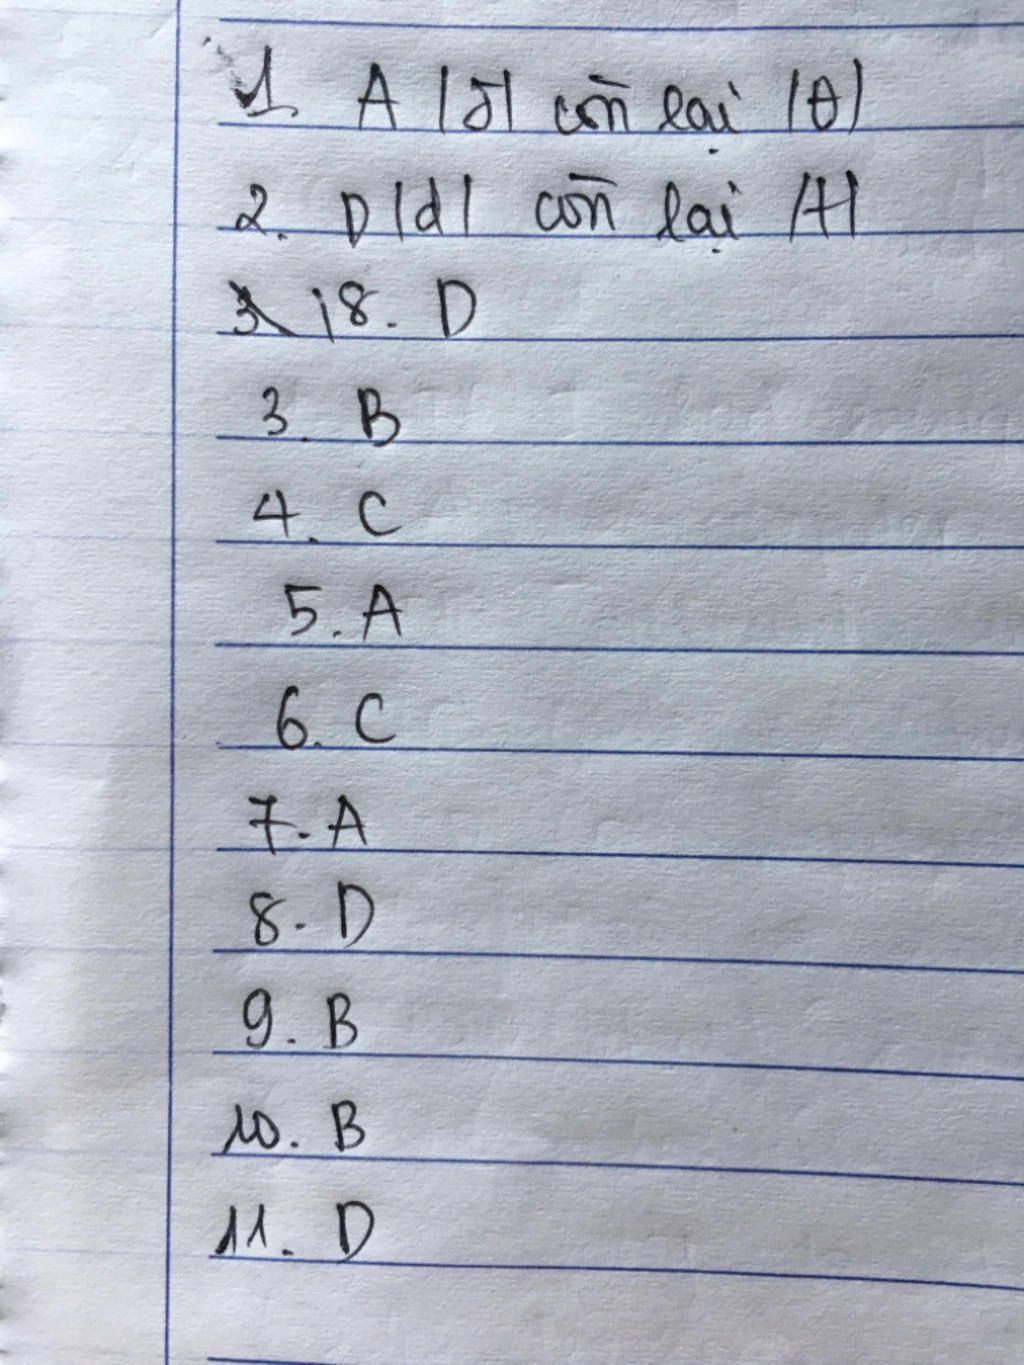 1. A /ð/ còn lại /θ/
2. D /d/ còn lại /t/
18. D
3. B
4. C
5. A
6. C
7. A
8. D
9. B
10. B
11. D